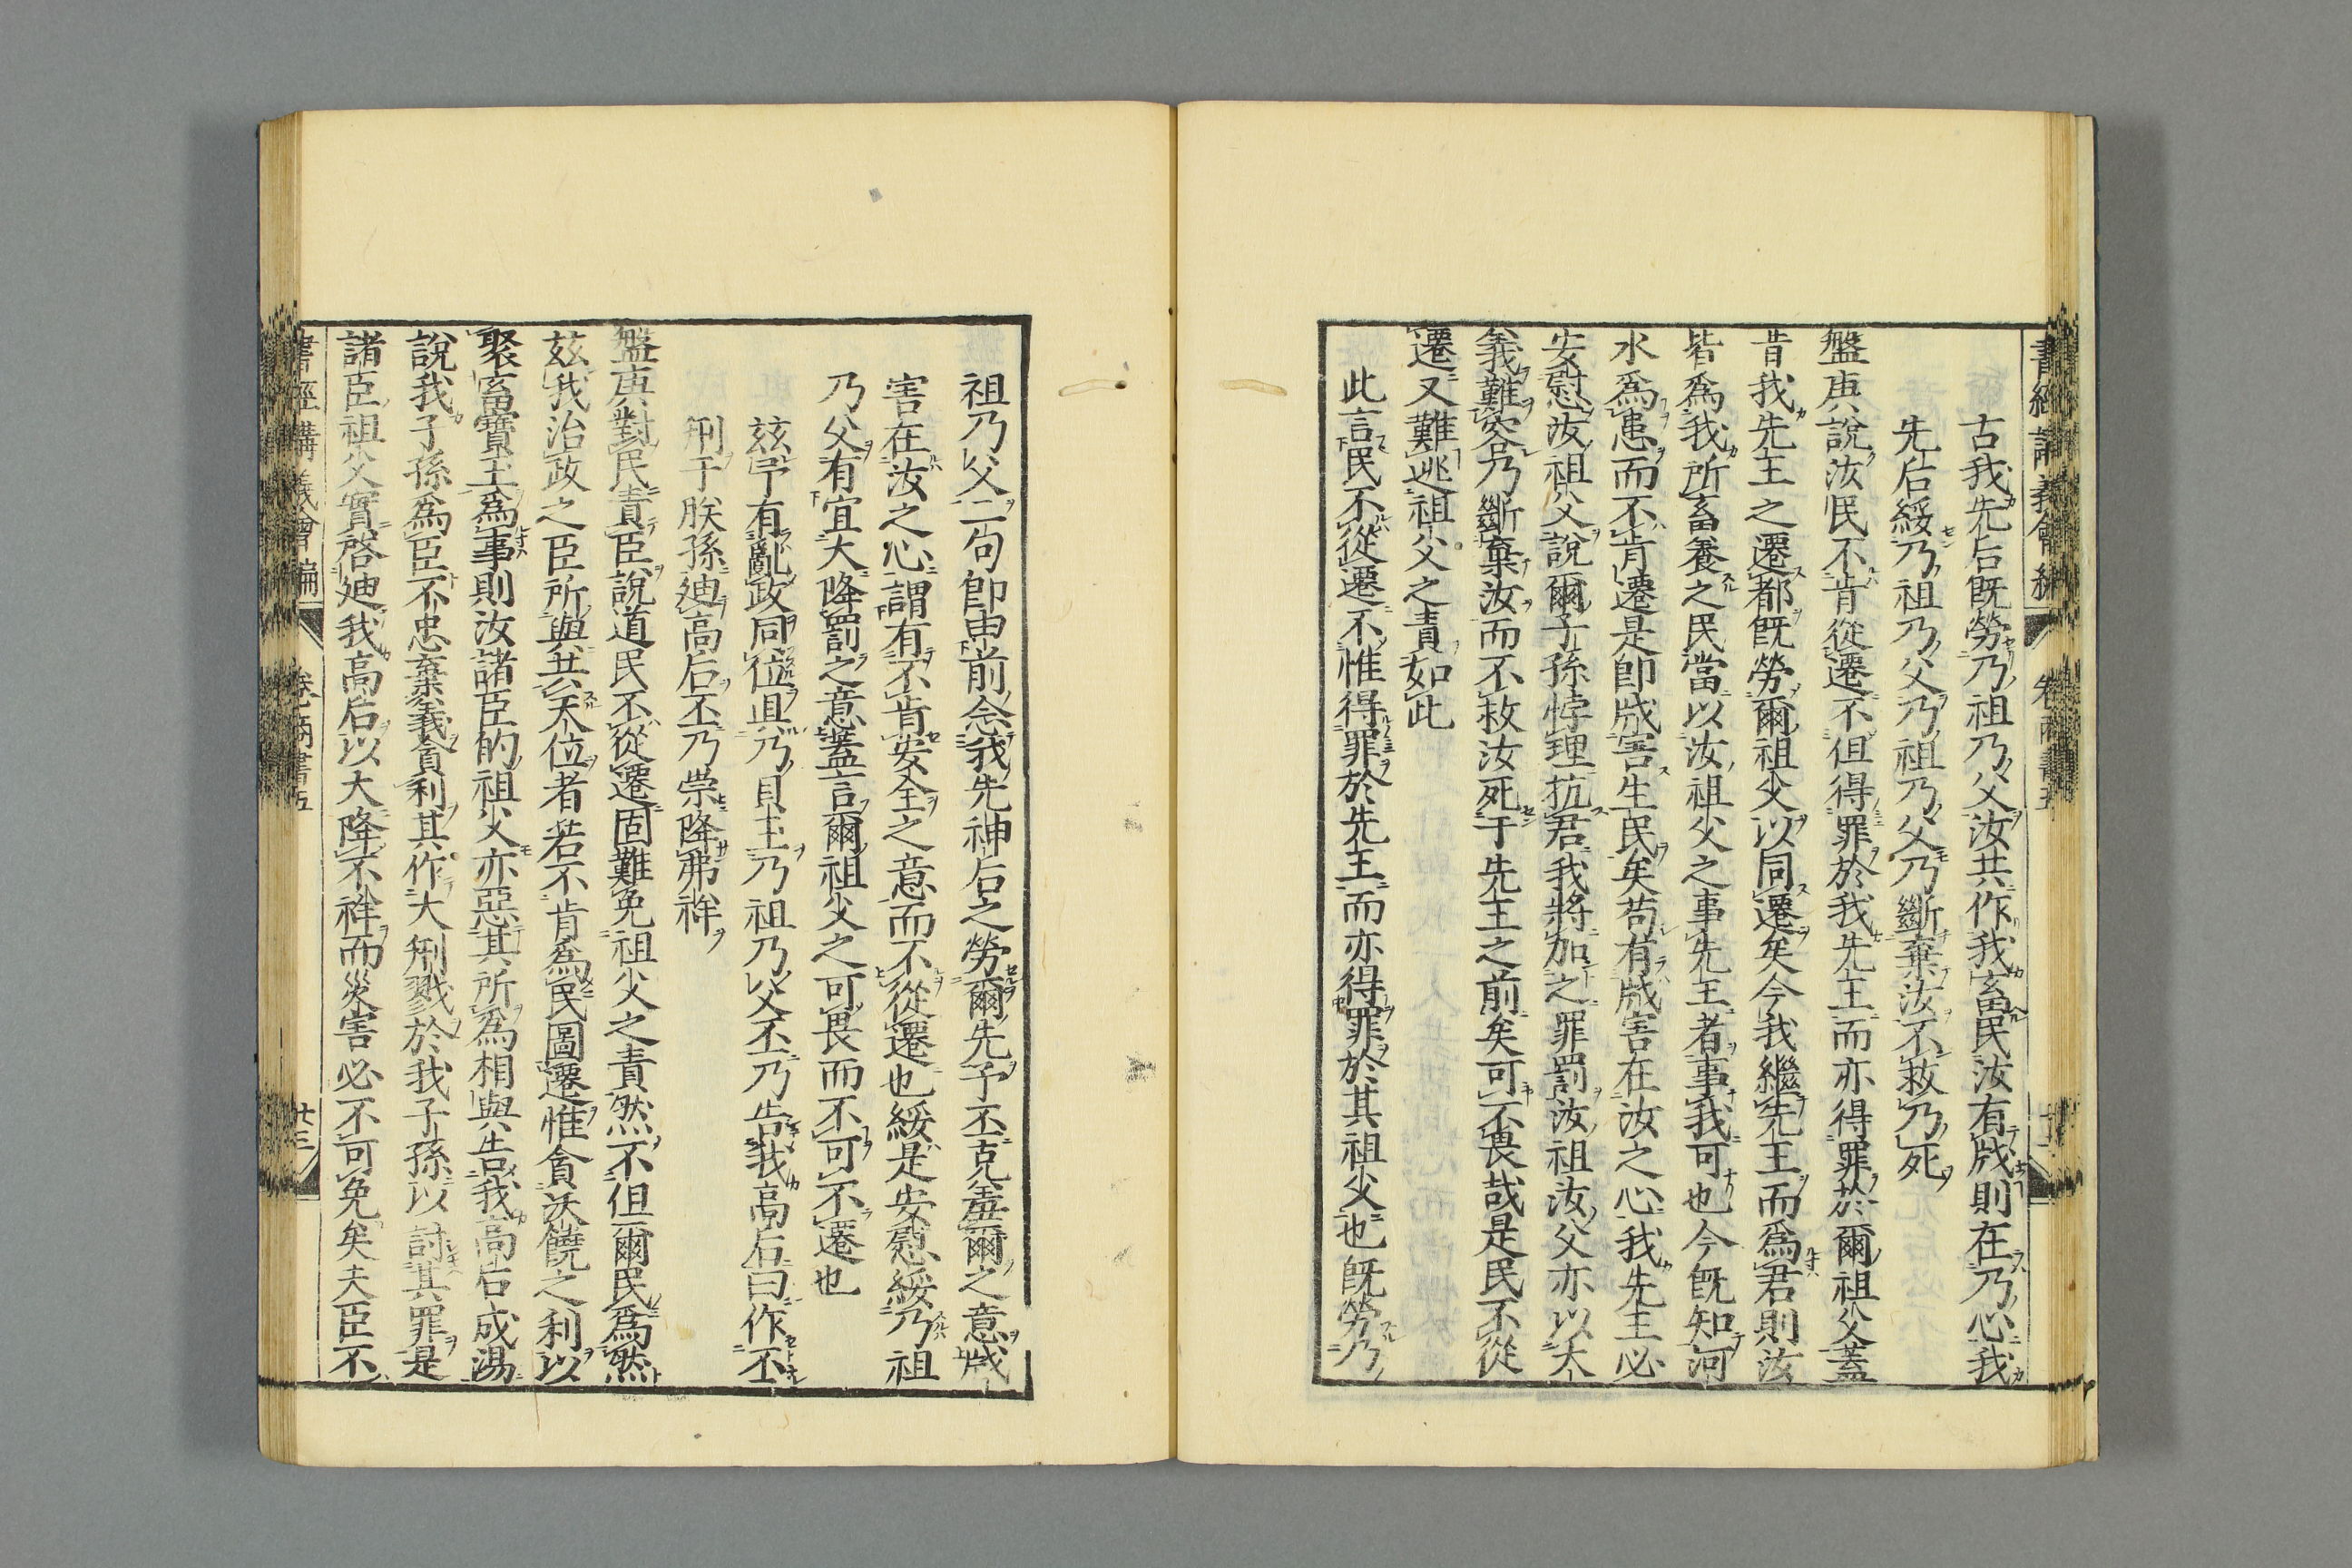 古我先后既勞乃祖乃父汝共作我畜民汝有戕則在乃心我
先后綏乃祖乃父乃祖乃父乃斷棄汝不救乃死
盤庚說汝民不肯從遷不但得罪於我先王而亦得罪於爾祖父蓋
昔我先王之遷都既勞爾祖父以同遷矣今我繼先王而為君則汝
皆為我所畜養之民當以汝祖父之事先王者事我可也今既知河
水為患而不肯遷是即戕害生民矣苟有戕害在汝之心我先王必
安慰汝祖父說爾子孫悖理抗君我將加之罪罰汝祖汝父亦以大
義難容乃斷棄汝而不救汝死于先王之前矣可不畏哉是民不從
遷又難逃祖父之責如此
此言民不從遷不惟得罪於先王而亦得罪於其祖父也既勞乃
祖乃父二句即申前念我先神后之勞爾先予丕克羞爾之意戕
害在汝之心謂有不肯安全之意而不從遷也綏是安慰綏乃祖
乃父有宜大降罰之意蓋言爾祖父之可畏而不可不遷也
茲予有亂政同位具乃貝玉乃祖乃父丕乃告我高后曰作丕
刑于朕孫迪高后丕乃崇降弗祥
盤庚對民責臣說道民不從遷固難免祖父之責然不但爾民為然
茲我治政之臣所與共天位者若不肯為民圖遷惟貪沃饒之利以
聚畜寶玉為事則汝諸臣的祖父亦惡其所為相與告我高后成湯
說我子孫為臣不忠棄義貪利其作大刑戮於我子孫以討其罪是
諸臣祖父實啓迪我高后以大降不祥而災害必不可免矣夫臣不
書經講義會編 卷 商書五 廿三